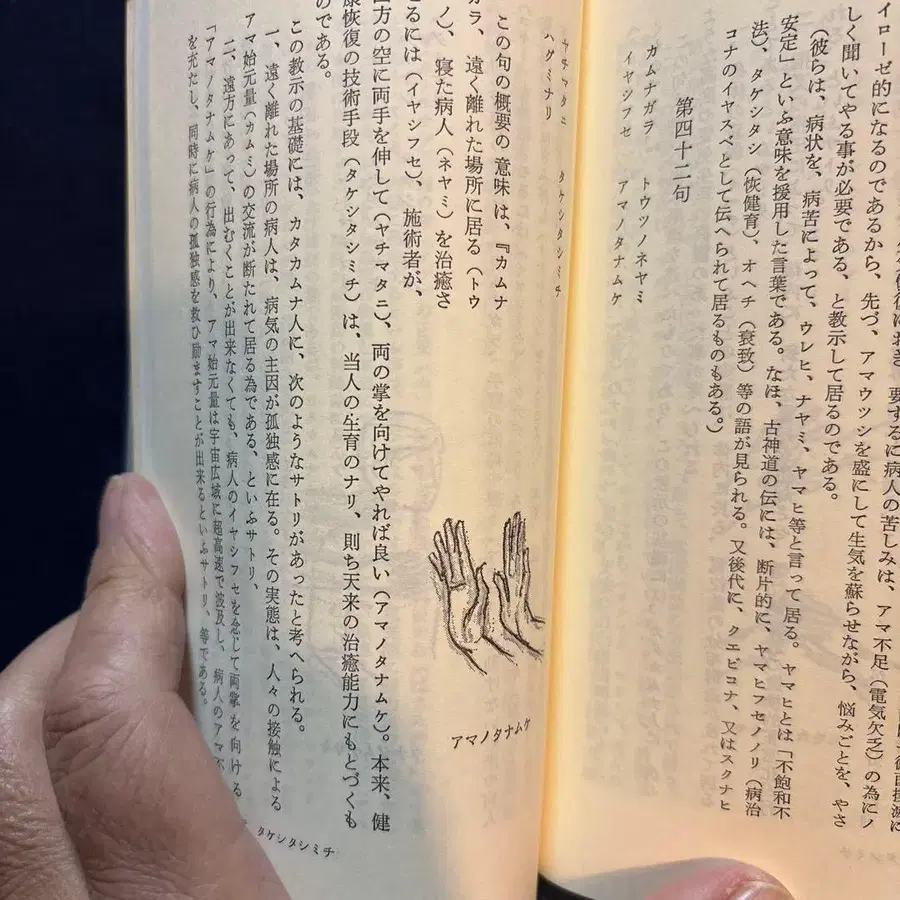 イローゼ的になるのであるから、先づ、アマウツシを盛にして生気を蘇らせながら、悩みごとを、やさ
しく聞いてやる事が必要である、と教示して居るのである。
(彼らは、病状を、病苦によって、ウレヒ、ナヤミ、ヤマヒ等と言って居る。ヤマヒとは「不飽和不
安定」といふ意味を援用した言葉である。なほ、古神道の伝には、断片的に、ヤマヒフセノノリ(病治
法)、タケシタシ(恢健育)、オヘチ(衰致)等の語が見られる。又後代に、クエビコナ、又はスクナヒ
コナのイヤスベとして伝へられて居るものもある。)
第四十二句
カムナガラ トウツノネヤミ
イヤシフセ アマノタナムケ
ヤチマタニ タケシタシミチ
ハグミナリ
この句の概要の意味は、『カムナ
ガラ、遠く離れた場所に居る(トウ
ノ)、寝た病人(ネヤミ)を治癒さ
るには(イヤシフセ)、施術者が、
方の空に両手を伸して(ヤチマタニ)、両の掌を向けてやれば良い(アマノタナムケ)。本来、健
康恢復の技術手段(タケシタシミチ)は、当人の生育のナリ、則ち天来の治癒能力にもとづくも
のである。
アマノタナムケ
この教示の基礎には、カタカムナ人に、次のようなサトリがあったと考へられる。
一、遠く離れた場所の病人は、病気の主因が孤独感に在る。その実態は、人々の接触による
アマ始元量(カムミ)の交流が断たれて居る為である、といふサトリ、
二、遠方にあって、出むくことが出来なくても、病人のイヤシフセを念じて両掌を向ける
「アマノタナムケ」の行為により、アマ始元量は宇宙広域に超高速で波及し、病人のアマ不
を充たし、同時に病人の孤独感を救ひ励ますことが出来るといふサトリ、等である。
タケシタシミチ